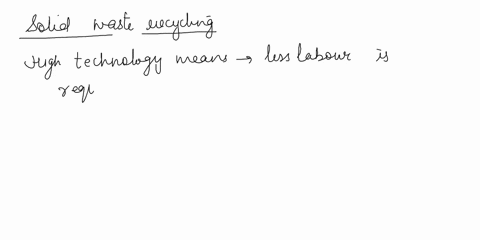 Solid waste recycling
High technology means → less labour is
requ